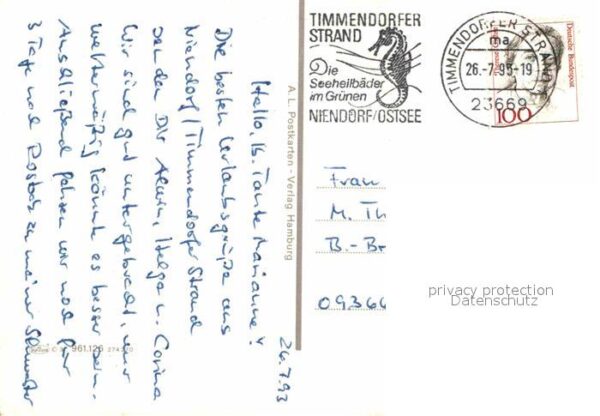 TIMMENDORFER
STRAND
Die
Seeheilbäder
im Grünen
NIENDORF/OSTSEE
TIMMENDORFER STRAND
ma
26.-7.95-19
23669
Deutsche Bundespost
100
26.7.93
Hallo, lb. Tante Marianne!
Die besten Urlaubsgrüße aus
Niendorf/Timmendorfer Strand
senden Dir Helga u. Corina
Wir sind gut untergebracht, nur
wettermäßig könnte es besser sein.
Anschließend fahren wir noch für
3 Tage nach zu meiner Schwester
A. L. Postkarten - Verlag Hamburg
961.126
Frau
M. Th
B.-Br
09366
privacy protection
Datenschutz